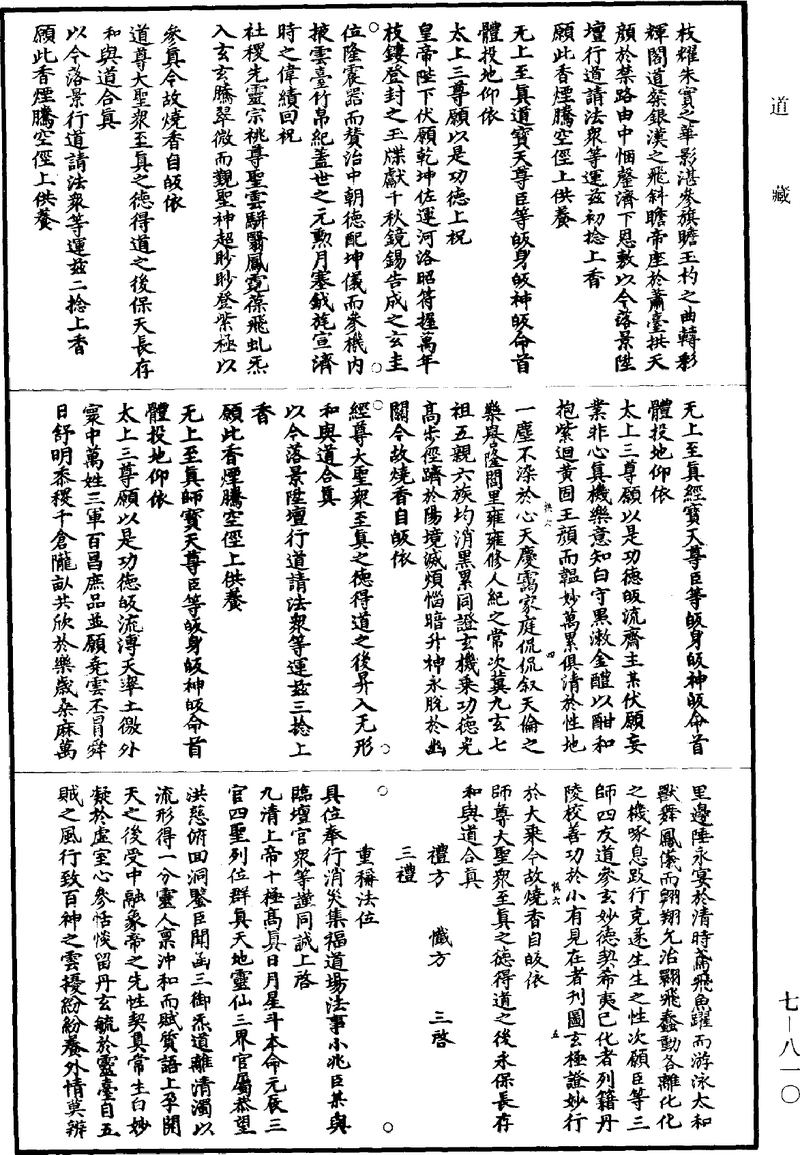 道藏
枝耀朱實之華影湛參旗瞻王杓之曲轉彩
輝閣道粲銀漢之飛斜瞻帝座於蕭臺拱天
顏於禁路由中悃罄濟下恩敷以今落景陞
壇行道請法眾等運兹初捻上香
願此香煙騰空徑上供養
无上至真道寶天尊臣等皈身皈神皈命首
體投地仰依
太上三尊願以是功德上祝
皇帝陛下伏願乾坤佐運河洛昭符握萬年
枝鏤登封之玉牒獻千秋鏡錫告成之玄圭
位隆震器而賛治中朝德配坤儀而參機內
掖雲臺竹帛紀蓋世之元勳月塞鉞旄宣濟
時之偉績回祝
社稷先靈宗祧尊聖雲駢翳鳳霓葆飛虬炁
入玄玄騰翠微而觀聖神超眇眇登紫極以
參真令故燒香自皈依
道尊大聖眾至真之德得道之後保天長存
和與道合真
以今落景行道請法眾等運兹二捻上香
願此香煙騰空徑上供養
无上至真經寶天尊臣等皈身皈神皈命首
體投地仰依
太上三尊願以是功德皈流齊主某伏願妄
業非心真機樂意知白守黑漱金醴以酣和
抱紫迴黃固玉顏而韞妙萬累俱清於性地
一塵不染於心天慶靄家庭侃侃叙天倫之
樂譽隆閭里雍雍修人紀之常次冀九玄七
祖五親六族均消黑累同證玄機乗功德光
高步徑躋於陽境滅煩惱暗升神永脫於幽
關令故燒香自皈依
經尊大聖眾至真之德得道之後昇入无形
和與道合真
以今落景陞壇行道請法眾等運兹三捻上
香
願此香煙騰空徑上供養
无上至真師寶天尊臣等皈身皈神皈命首
體投地仰依
太上三尊願以是功德皈流溥天率土徼外
寰中萬姓三軍百昌庶品並願堯雲丕冒舜
日舒明黍稷千倉隴畝共欣於樂歲桑麻萬
里邊陲永宴於清時鳶飛魚躍而游泳太和
獸舞鳳儀而翱翔允治翾飛蠢動各離化化
之機啄息跂行克遂生生之性次願臣等三
師四友道參玄妙德契希夷已化者列籍丹
陵校善功於小有見在者刊圖玄極證妙行
於大乗令故燒香自皈依
師尊大聖眾至真之德得道之後永保長存
和與道合真
禮方 懺方 三啓
三禮
重稱法位
具位奉行消災集福道場法事小兆臣某與
臨壇官眾等謹同誠上啓
九清上帝十極高真日月星斗本命元辰三
官四聖列位群真天地靈仙三界官屬恭望
洪慈俯回洞鑒臣聞函三御炁道離清濁以
流形得一分靈人稟沖和而賦質語上孚開
天之後受中融象帝之先性契真常生白妙
凝於虛室心參恬惔留丹玄毓於靈臺自五
賊之風行致百神之雲擾紛紛養外情莫辨
七－八一〇